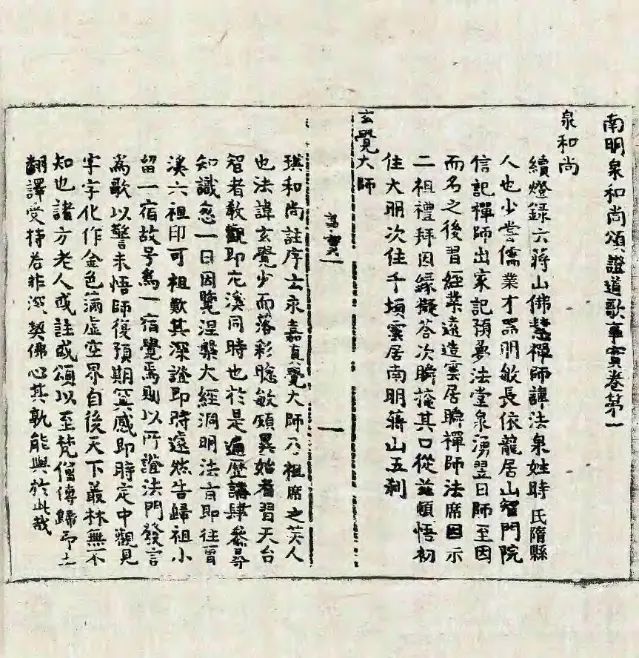 南明泉和尚頌證道歌事實卷第一
泉和尚
續燈錄六蔣山佛慧禪師諱法泉姓時氏隋縣
人也少甞儒業才器明敏長依龍居山智門院
信記禪師出家記預㝱法堂泉湧翌日師至因
而名之後習經業遠造雲居瞻禪師法席因示
二祖禮拜因緣擬荅次瞻掩其口從玆頓悟初
住大明次住千頃雲居南明蔣山五刹
玄覺大師
事實一
一
琪和尚註序云永嘉眞覺大師乃祖席之英人
也法諱玄覺少而落彩聰敏頗異始者習天台
智者敎觀即左溪同時也於是遍歷講肆叅尋
知識忽一日因覽涅槃大經洞明法旨即往曺
溪六祖印可祖歎其深證即時遠然告歸祖小
留一宿故号爲一宿覺焉則以所證法門發言
爲歌以警未悟師後預期㝠感即時定中觀見
字字化作金色滿虛空界自後天下叢林無不
知也諸方老人或註或頌以至梵僧傳歸印土
翻譯受持若非深契佛心其孰能與於此哉